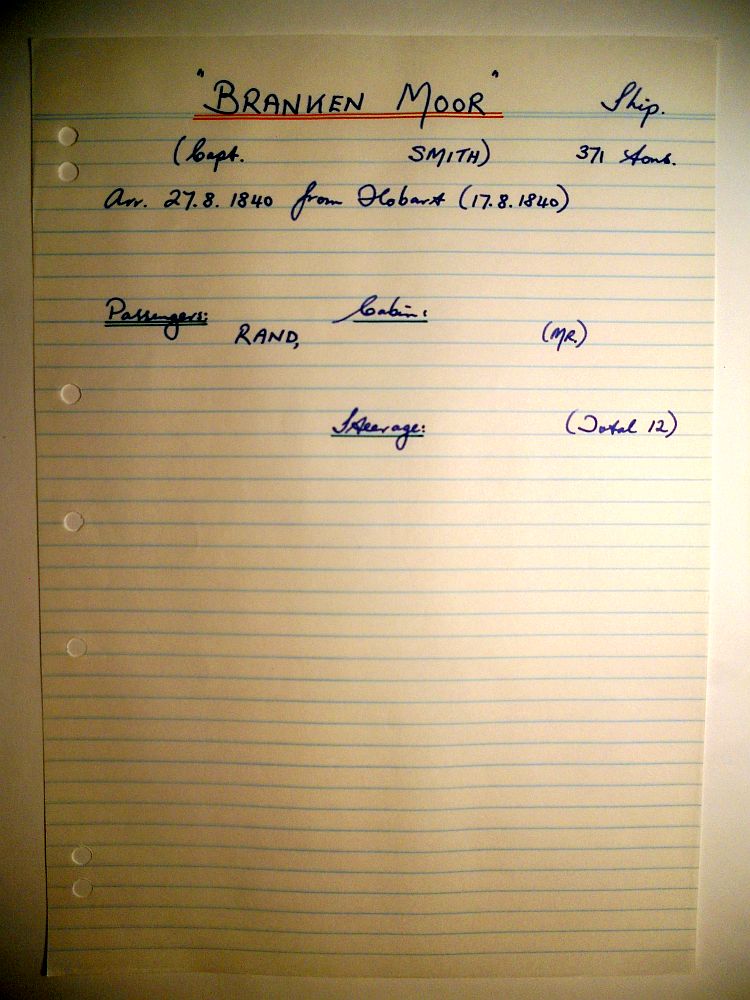 "BRANKEN MOOR" Ship.
(Capt. SMITH) 371 tons.
Arr. 27.8.1840 from Hobart (17.8.1840)
Passengers: Cabin:
RAND, (MR.)
Steerage: (Total 12)